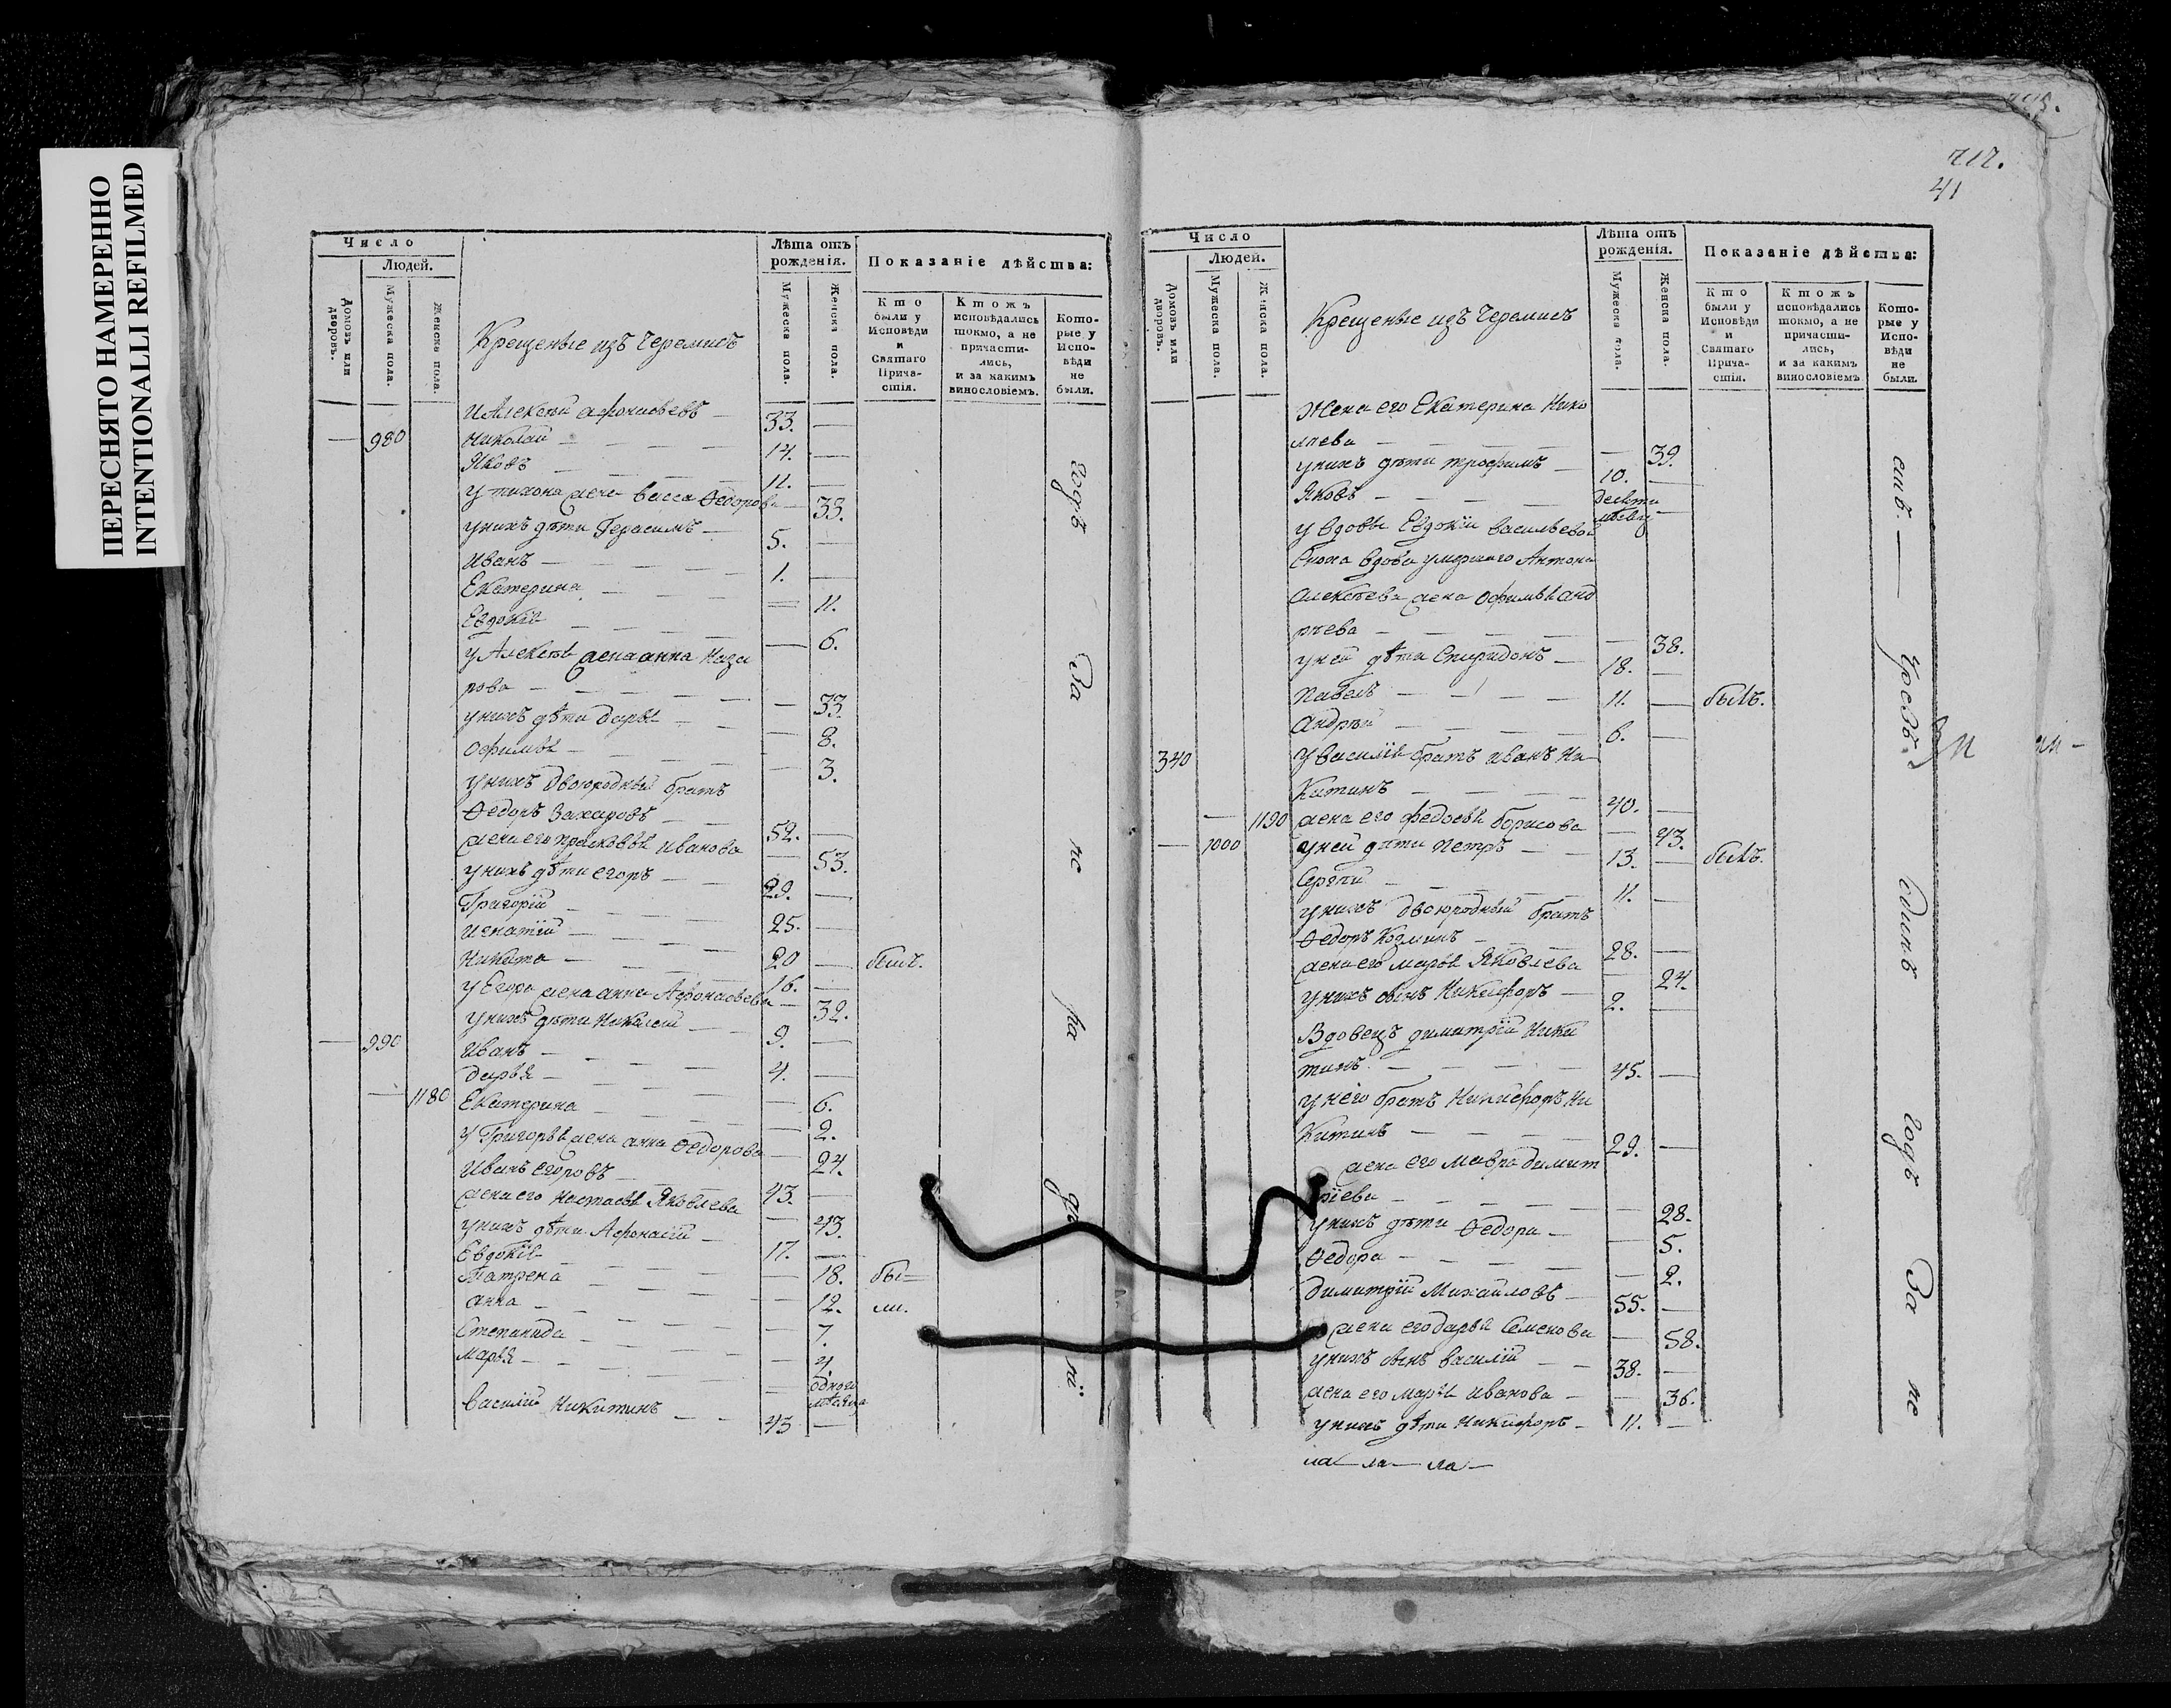 ПЕРЕСНЯТО НАМЕРЕННО
INTENTIONALLI REFILMED
712.
41
Число
Людей.
Домовъ или дворовъ.
Мужеска пола.
Женска пола.
Крещеные изъ Черемисъ
Лѣта отъ рожденія.
Мужеска пола.
Женска пола.
Показаніе дѣйства:
Кто были у Исповѣди и Святаго Причастія.
Ктожъ исповѣдались токмо, а не причастились, и за какимъ винословіемъ.
Которые у Исповѣди не были.
И Алексѣй Афонасьевъ — 33. —
— 980 Николай — 14. —
Яковъ — 11. —
у тихона жена васса Ѳедорова — 33.
у нихъ дѣти Герасимъ — 5. —
Иванъ — 1. —
Екатерина — 11.
Евдокія — 6.
у Алексѣя жена анна Наза
рова — 33.
у нихъ дѣти дарья — 8.
Офимья — 3.
у нихъ двоюродный братъ
Ѳедоръ Захаровъ — 52. —
жена его прасковья иванова — 53.
у нихъ дѣти егоръ — 29. —
Григорій — 25. —
Игнатій — 20 — былъ.
Никита — 16. —
у Егора жена анна Афонасьева — 32.
у нихъ дѣти Николай — 9. —
— 990 Иванъ — 4. —
дарья — 6.
— 1180 Екатерина — 2.
у Григорья жена анна Ѳедорова — 24.
Иванъ егоровъ — 43. —
жена его настасья Яковлева — 43.
у нихъ дѣти Афонасій — 17. —
Евдокія — 18. бы—
Матрена — 12. ли.
анна — 7.
Степанида — 4.
Марья — одного мѣсяца
василій Никитинъ — 43 —
годъ
За
не
ра
дѣ
нi
Число
Людей.
Домовъ или дворовъ.
Мужеска пола.
Женска пола.
Крещеные изъ Черемисъ
Лѣта отъ рожденія.
Мужеска пола.
Женска пола.
Показаніе дѣйства:
Кто были у Исповѣди и Святаго Причастія.
Ктожъ исповѣдались токмо, а не причастились, и за какимъ винословіемъ.
Которые у Исповѣди не были.
Жена его Екатерина Нико
лаева — 39.
у нихъ дѣти трофимъ — 10. —
Яковъ —
у вдовы Евдокіи васильевой
Сноха вдова умершаго Антона
Алексѣева жена Офимья анд
рѣева — 38.
у ней дѣти Спиридонъ — 18. —
павелъ — 11. — былъ.
Андрѣй — 6. —
340 у василія братъ иванъ Ни
китинъ — 40. —
— 1190 жена его федосья борисова — 43.
— 1000 у ней дѣти петръ — 13. — былъ.
Сергѣй — 11. —
у нихъ двоюродный братъ
Ѳедоръ Козминъ — 28. —
жена его марья Яковлева — 24.
у нихъ сынъ Никифоръ — 2. —
Вдовецъ димитрій Ники
тинъ — 45. —
у него братъ Никифоръ Ни
китинъ — 29. —
жена его мавра димит
ріева — 28.
у нихъ дѣти Ѳедора — 5.
Ѳедора — 2.
димитрій Михайловъ — 55. —
жена его дарья Семенова — 58.
у нихъ сынъ василій — 38. —
жена его марья иванова — 36.
у нихъ дѣти Никифоръ — 11. —
единъ
годъ
За
не